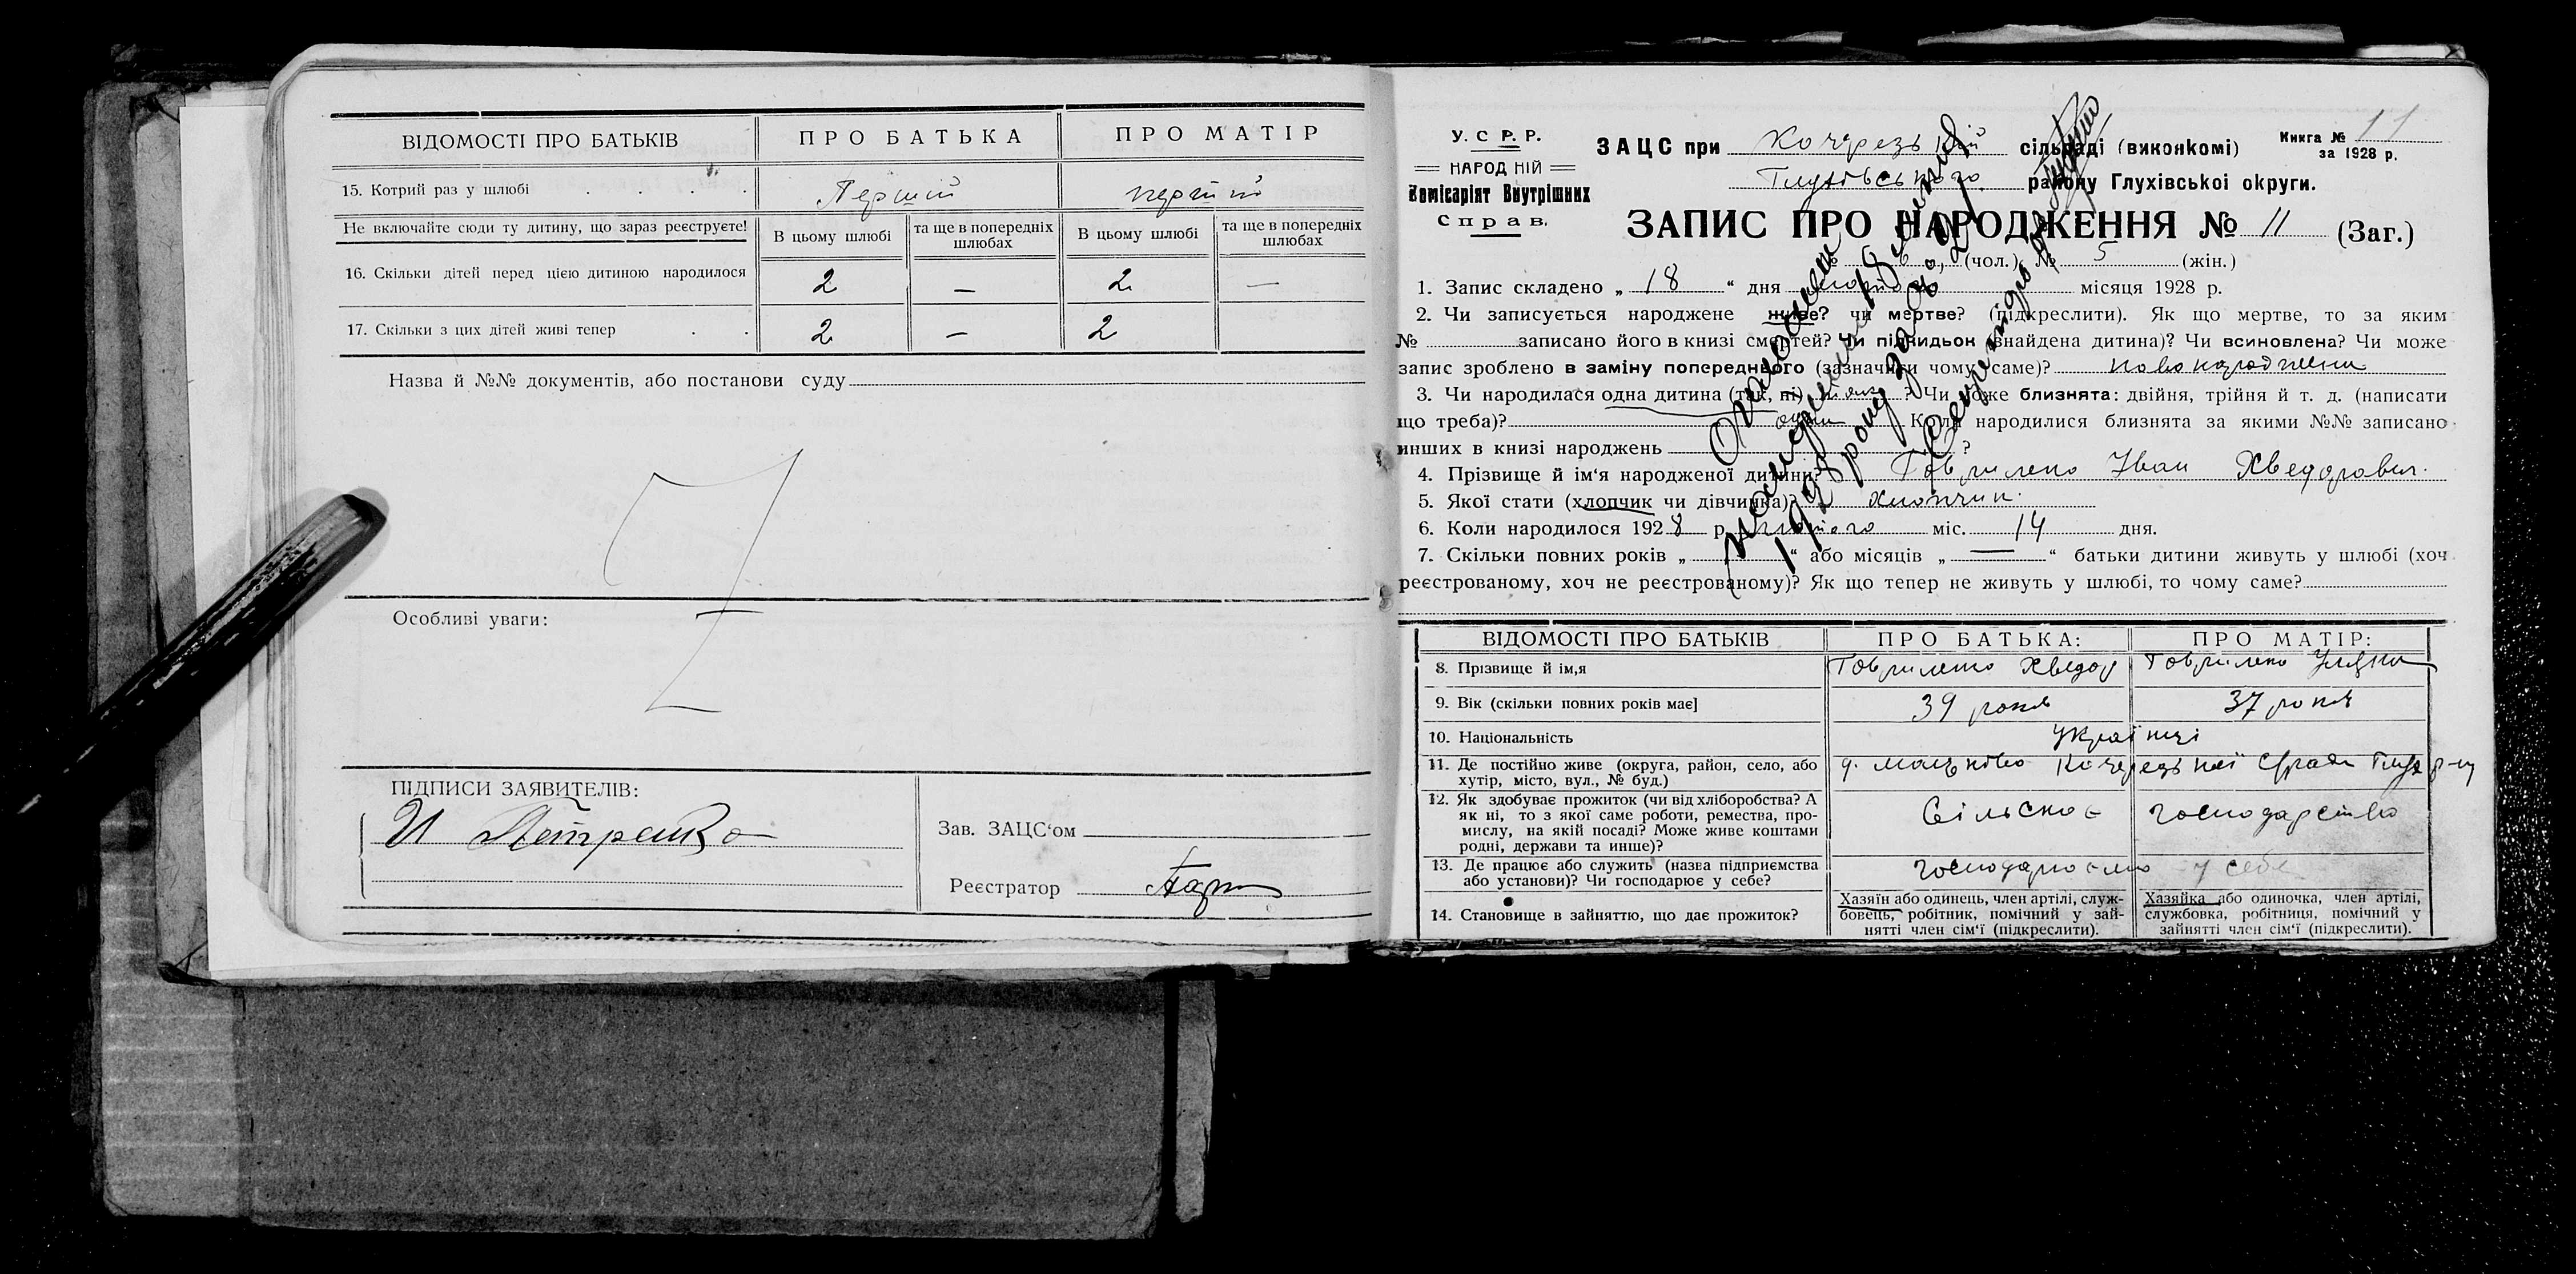 ВІДОМОСТІ ПРО БАТЬКІВ ПРО БАТЬКА ПРО МАТІР
15. Котрий раз у шлюбі . . . . Перший перший
Не включайте сюди ту дитину, що зараз реєструєте! В цьому шлюбі та ще в попередніх шлюбах В цьому шлюбі та ще в попередніх шлюбах
16. Скільки дітей перед цією дитиною народилося 2 — 2 —
17. Скільки з цих дітей живі тепер . . 2 — 2
Назва й №№ документів, або постанови суду
Особливі уваги:
ПІДПИСИ ЗАЯВИТЕЛІВ:
И Петренко
Зав. ЗАЦС'ом
Реєстратор
У. С. Р. Р.
НАРОДНІЙ
Комісаріят Внутрішніх
Справ.
ЗАЦС при сільраді (виконкомі)
Книга № 11
за 1928 р.
Глухівського району Глухівської округи.
ЗАПИС ПРО НАРОДЖЕННЯ № 11 (Заг.)
№ 6, (чол.) № 5 (жін.)
1. Запис складено „ 18 “ дня лютого місяця 1928 р.
2. Чи записується народжене живе? чи мертве? (підкреслити). Як що мертве, то за яким
№ записано його в книзі смертей? Чи підкидьок (знайдена дитина)? Чи всиновлена? Чи може
запис зроблено в заміну попереднього (зазначити чому саме)? новонароджений
3. Чи народилася одна дитина (так, ні) ? Чи може близнята: двійня, трійня й т. д. (написати
що треба)? один Коли народилися близнята за якими №№ записано
инших в книзі народжень ?
4. Прізвище й ім'я народженої дитини? Іван Хведорович.
5. Якої стати (хлопчик чи дівчинка)? хлопчик.
6. Коли народилося 1928 р. лютого міс. 14 дня.
7. Скільки повних років „ “ або місяців „ — “ батьки дитини живуть у шлюбі (хоч
реєстрованому, хоч не реєстрованому)? Як що тепер не живуть у шлюбі, то чому саме?
ВІДОМОСТІ ПРО БАТЬКІВ ПРО БАТЬКА: ПРО МАТІР:
8. Прізвище й ім,я Хведор
9. Вік (скільки повних років має] 39 років 37 років
10. Національність Українці
11. Де постійно живе (округа, район, село, або
хутір, місто, вул., № буд.)
12. Як здобуває прожиток (чи від хліборобства? А
як ні, то з якої саме роботи, ремества, про-
мислу, на якій посаді? Може живе коштами
родні, держави та инше)?
Сільське господарство
13. Де працює або служить (назва підприємства
або установи)? Чи господарює у себе?
у себе
14. Становище в зайняттю, що дає прожиток?
Хазяїн або одинець, член артілі, служ-
бовець, робітник, помічний у зай-
нятті член сім'ї (підкреслити).
Хазяйка або одиночка, член артілі,
службовка, робітниця, помічний у
зайнятті член сім'ї (підкреслити).